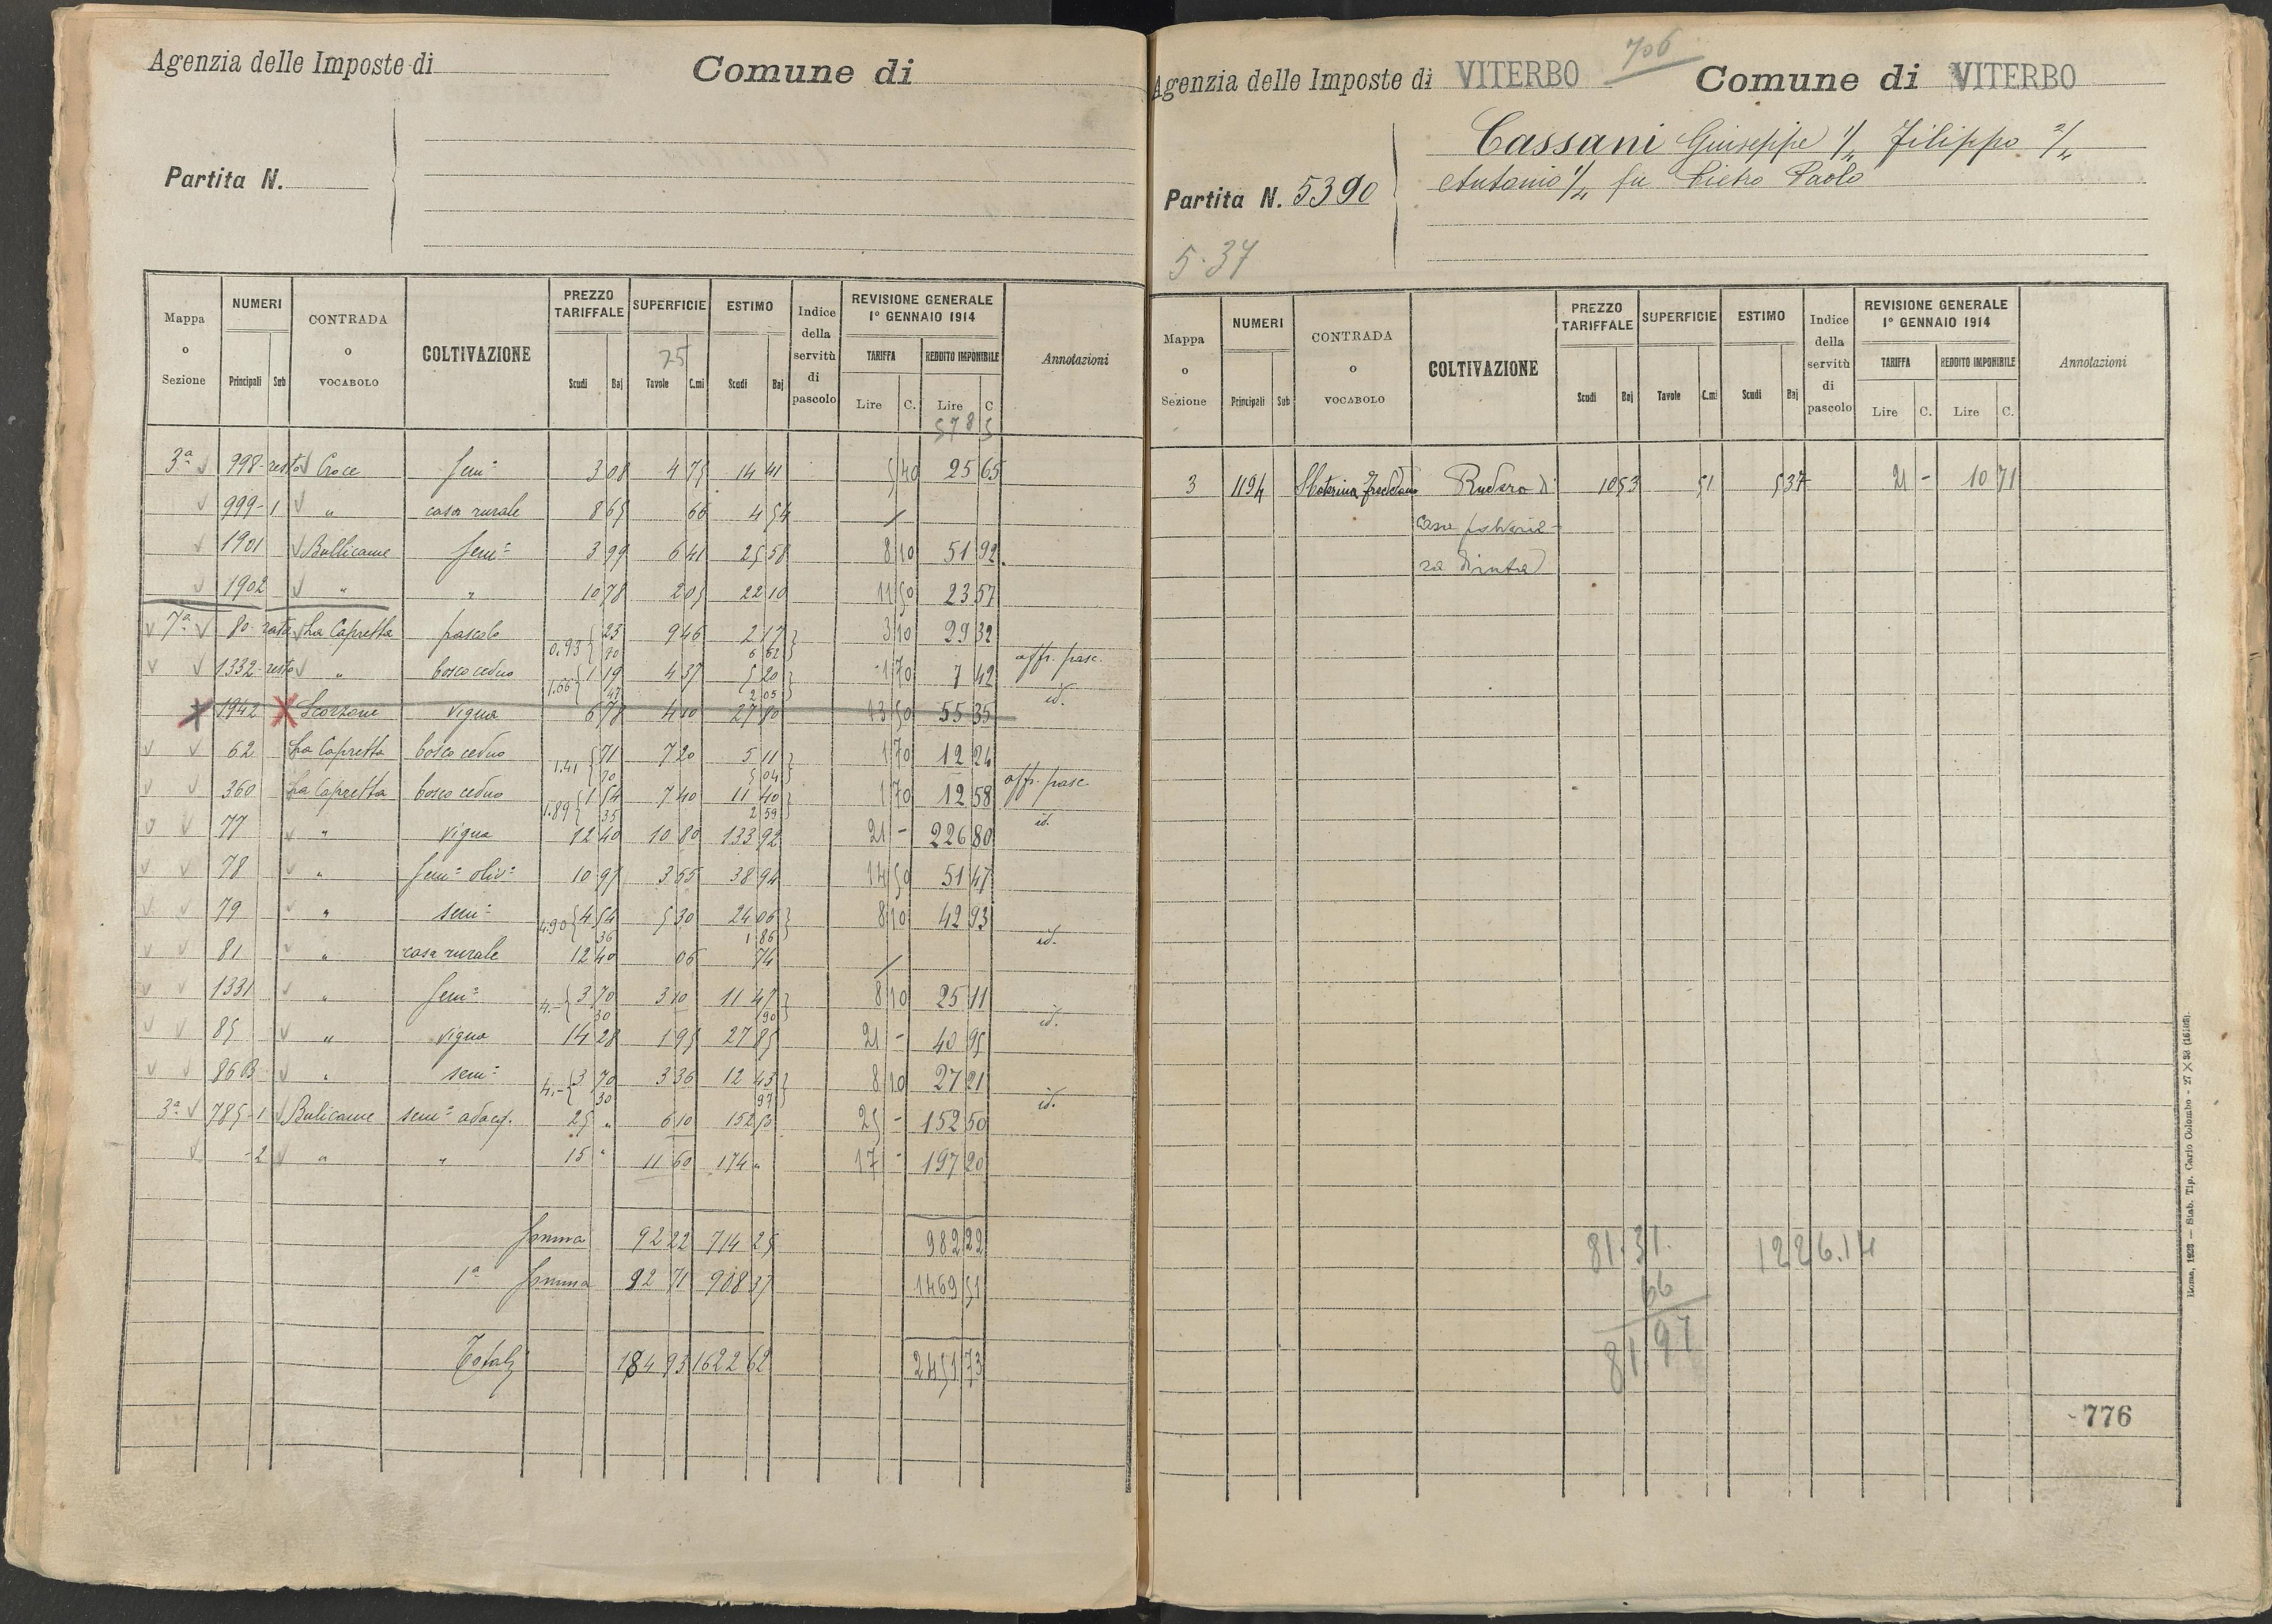 Agenzia delle Imposte di
Comune di
Partita N.
Mappa o Sezione | NUMERI Principali Sub | CONTRADA o VOCABOLO | COLTIVAZIONE | PREZZO TARIFFALE Scudi Baj | SUPERFICIE 25 Tavole C.mi | ESTIMO Scudi Baj | Indice della servitù di pascolo | REVISIONE GENERALE 1° GENNAIO 1914 TARIFFA Lire C. REDDITO IMPONIBILE Lire C | Annotazioni
578 5
3ª 998 resto Croce sem.e 3 08 4 75 14 41 5 40 25 65
999-1 " casa rurale 8 65 66 4 54 /
1901 Bullicame sem.e 3 99 6 41 25 58 8 10 51 92
1902 " " 10 78 2 05 22 10 11 50 23 57
7ª 80 rata La Capretta pascolo 0.93 { 23 70 9 46 2 17 6 62 } 3 10 29 32 aff. pasc.
1332 resto " bosco ceduo 1.66 { 1 19 47 4 37 5 20 2 05 } 1 70 7 42 id.
1942 Scorzone vigna 6 78 4 10 27 80 13 50 55 35
62 La Capretta bosco ceduo 1.41 { 71 70 7 20 5 11 5 04 } 1 70 12 24 aff. pasc.
360 La Capretta bosco ceduo 1.89 { 1 54 35 7 40 11 40 2 59 } 1 70 12 58 id.
77 " vigna 12 40 10 80 133 92 21 - 226 80
78 " sem.e oliv.o 10 97 3 55 38 94 14 50 51 47
79 " sem.e 4.90 { 4 54 36 5 30 24 06 1 86 } 8 10 42 93 id.
81 " casa rurale 12 40 06 74 /
1331 " sem.e 4.- { 3 70 30 3 10 11 47 90 } 8 10 25 11 id.
85 " vigna 14 28 1 95 27 85 21 - 40 95
86 B " sem.e 4.- { 3 70 30 3 36 12 43 97 } 8 10 27 21 id.
3ª 785-1 Bulicame sem.e adacq. 25 " 6 10 152 50 25 - 152 50
-2 " " 15 " 11 60 174 " 17 - 197 20
Somma 92 22 714 25 982 22
1ª Somma 92 71 908 37 1469 51
Totali 184 93 1622 62 2451 73
706
Agenzia delle Imposte di VITERBO
Comune di VITERBO
Cassani Giuseppe 1/4 Filippo 2/4
Antonio 1/4 fu Pietro Paolo
Partita N. 5390
5.37
Mappa o Sezione | NUMERI Principali Sub | CONTRADA o VOCABOLO | COLTIVAZIONE | PREZZO TARIFFALE Scudi Baj | SUPERFICIE Tavole C.mi | ESTIMO Scudi Baj | Indice della servitù di pascolo | REVISIONE GENERALE 1° GENNAIO 1914 TARIFFA Lire C. REDDITO IMPONIBILE Lire C. | Annotazioni
3 1194 Rudero di 10 53 51 5 37 21 - 10 71
casa
81.31. 1226.14
66
81 97
776
Roma, 1923 — Stab. Tip. Carlo Colombo - 27 X 38